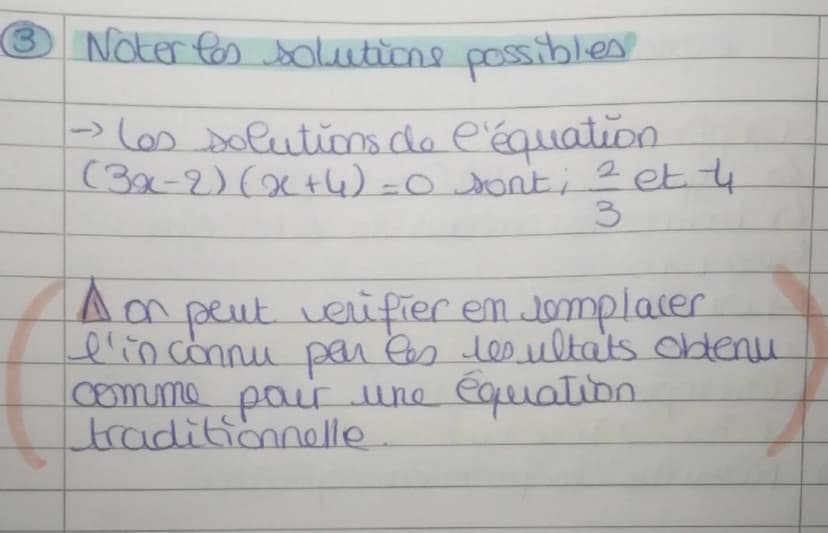 ③ Noter les solutions possibles
→ les solutions de l'équation
(3x-2)(x+4)=0 sont; 2/3 et -4
⚠ on peut verifier en remplacer
l'inconnu par les resultats obtenu
comme pour une équation
traditionnelle.